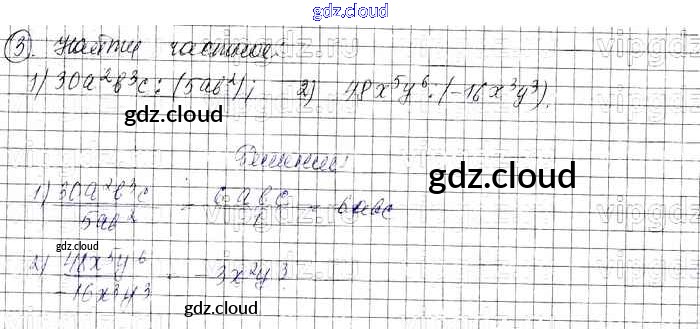 gdz.cloud
③. Найти частное:
1) 30a²b³c : (5ab²); 2) 48x⁵y⁶ : (-16x³y³).
gdz.cloud
Решение:
gdz.cloud
1) 30a²b³c / 5ab² = 6abc / 1 = 6abc
gdz.cloud
2) 48x⁵y⁶ / -16x³y³ = -3x²y³
gdz.cloud